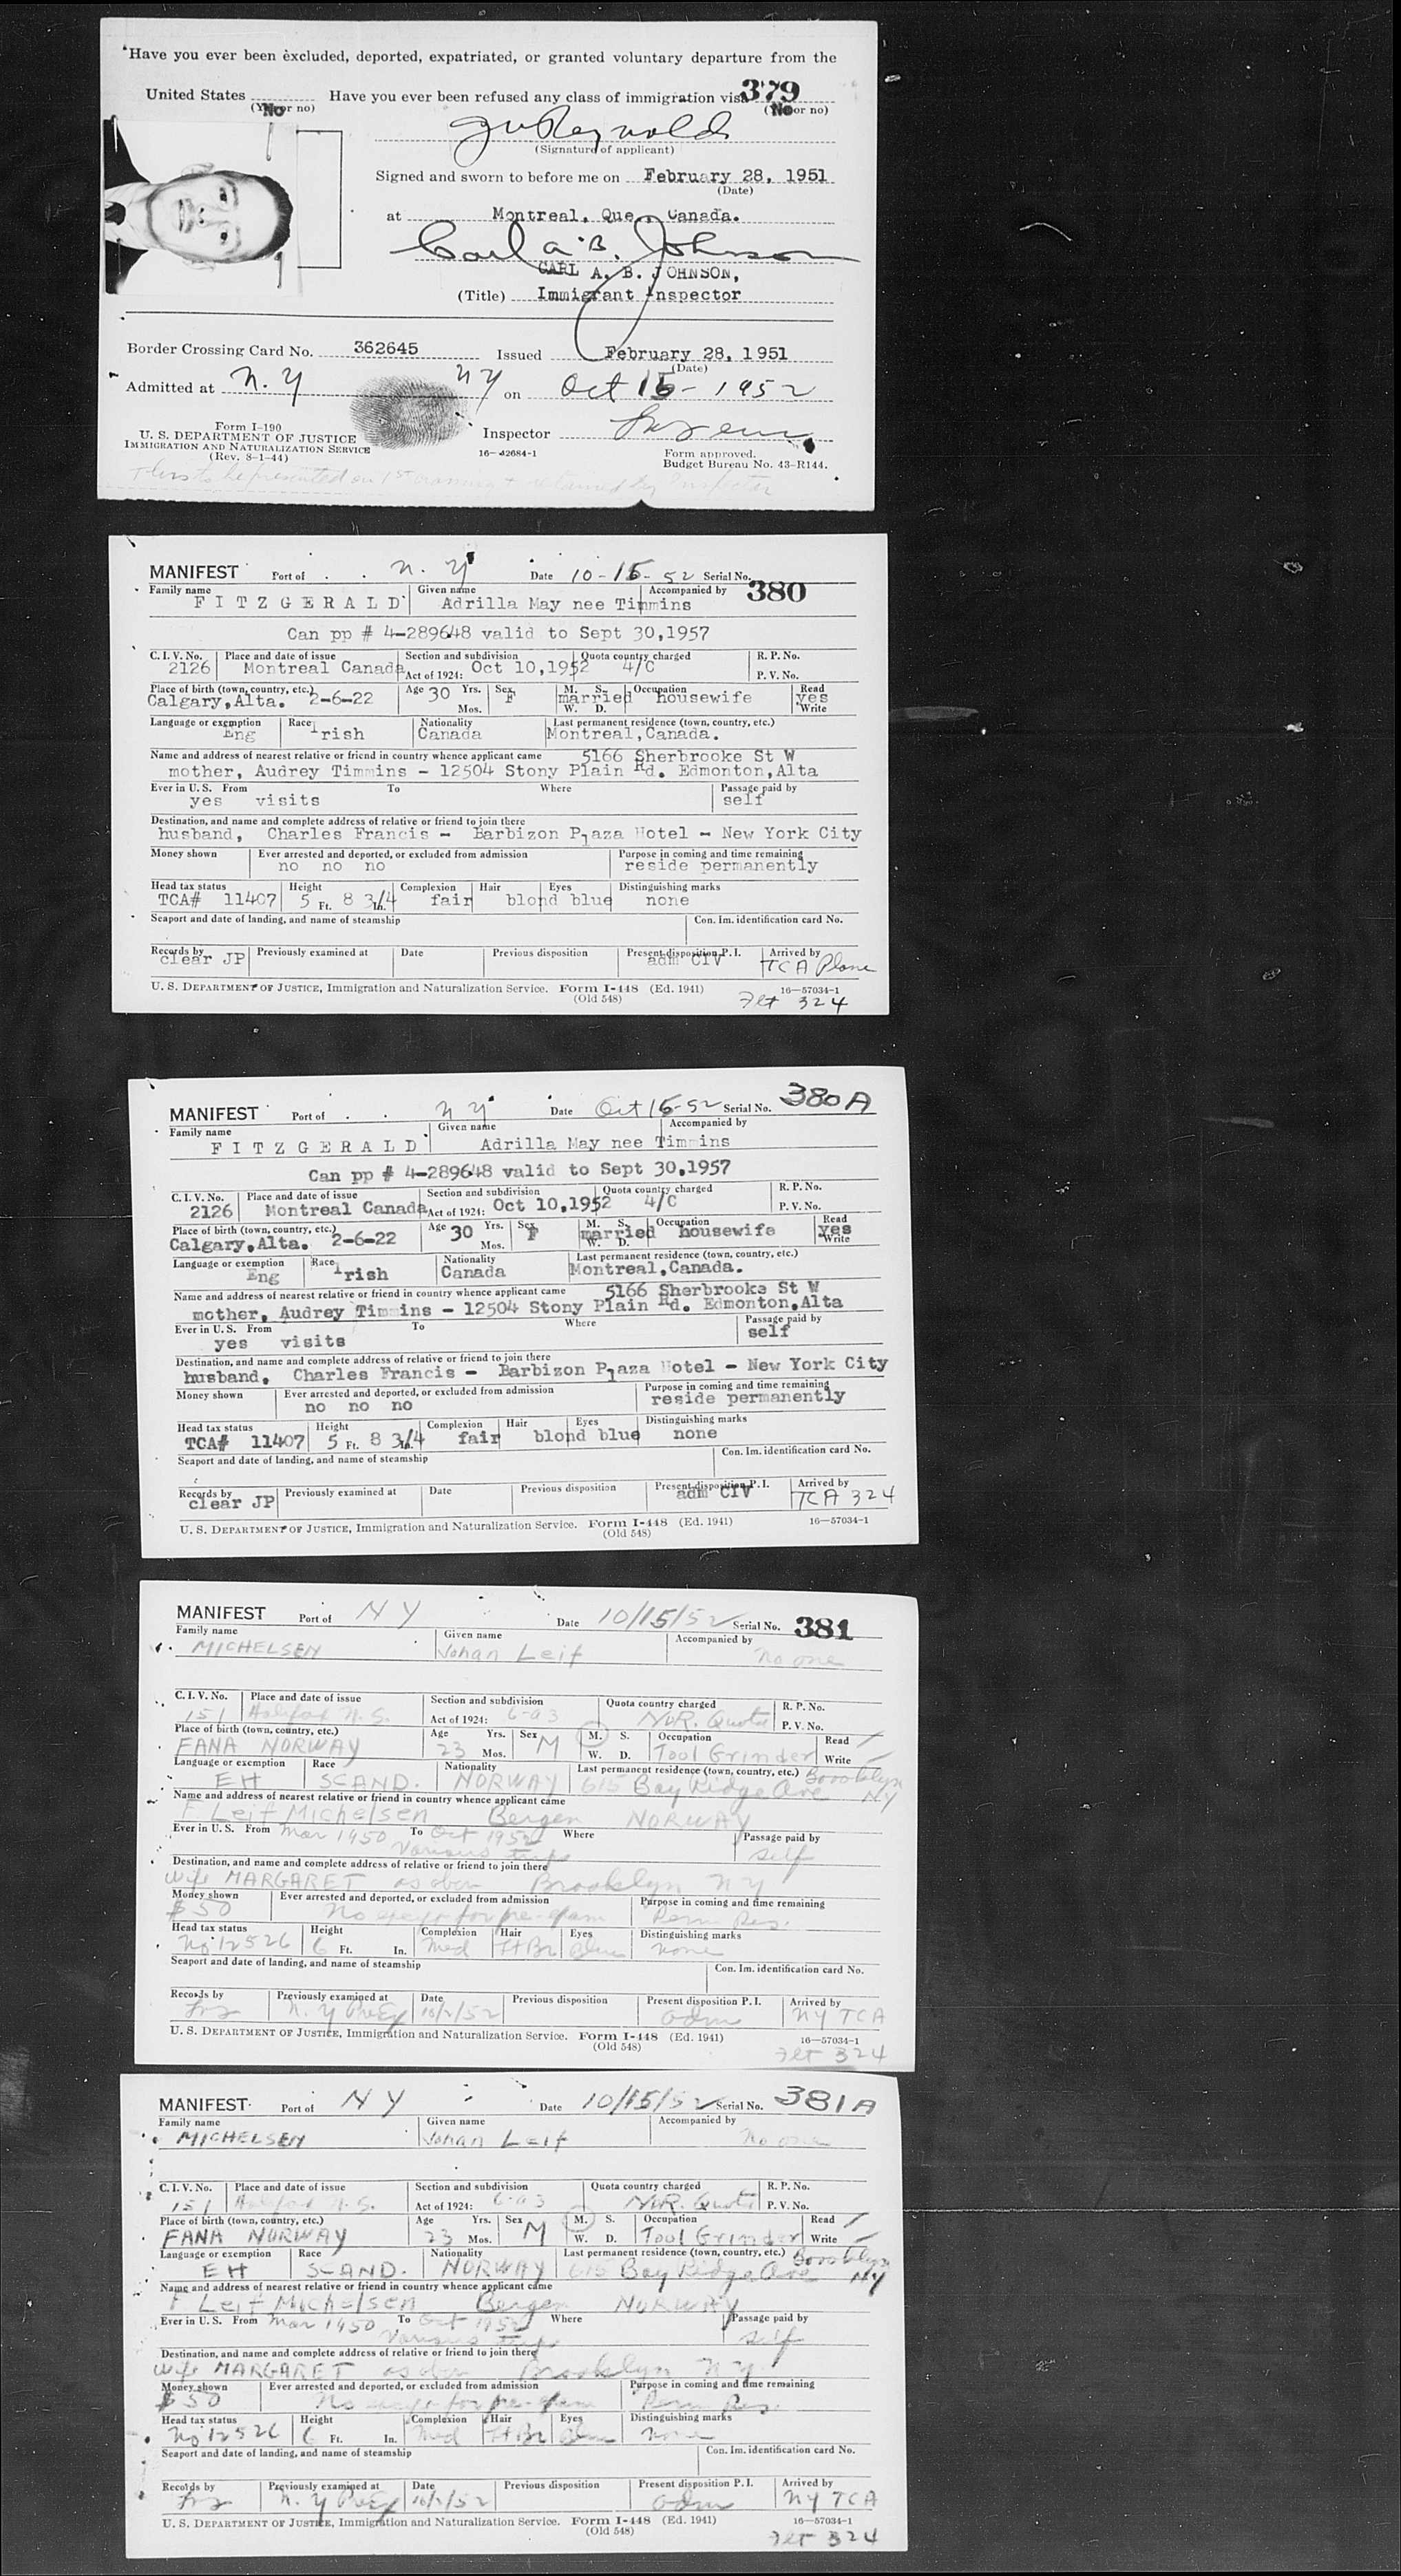 Have you ever been excluded, deported, expatriated, or granted voluntary departure from the
United States No Have you ever been refused any class of immigration visa 379
(Yes or no) (No or no)
(Signature of applicant)
Signed and sworn to before me on February 28, 1951
(Date)
at Montreal, Que. Canada.
Carl A. B. Johnson
CARL A. B. JOHNSON,
(Title) Immigrant Inspector
Border Crossing Card No. 362645 Issued February 28, 1951
(Date)
Admitted at N. Y NY on Oct 15 - 1952
Form I-190
U. S. DEPARTMENT OF JUSTICE
IMMIGRATION AND NATURALIZATION SERVICE
(Rev. 8-1-44)
Inspector
16-42684-1
Form approved.
Budget Bureau No. 43-R144.
MANIFEST Port of N. Y Date 10-15-52 Serial No. 380
Family name Given name Accompanied by
FITZGERALD Adrilla May nee Timmins
Can pp # 4-289648 valid to Sept 30,1957
C. I. V. No. Place and date of issue Section and subdivision Quota country charged R. P. No.
2126 Montreal Canada Act of 1924: Oct 10,1952 4/C P. V. No.
Place of birth (town, country, etc.) Age Yrs. Sex M. S. Occupation Read
Calgary,Alta. 2-6-22 30 Mos. F married W. D. housewife yes Write
Language or exemption Race Nationality Last permanent residence (town, country, etc.)
Eng Irish Canada Montreal,Canada.
Name and address of nearest relative or friend in country whence applicant came 5166 Sherbrooke St W
mother, Audrey Timmins - 12504 Stony Plain Rd. Edmonton,Alta
Ever in U. S. From To Where Passage paid by
yes visits self
Destination, and name and complete address of relative or friend to join there
husband, Charles Francis - Barbizon Plaza Hotel - New York City
Money shown Ever arrested and deported, or excluded from admission Purpose in coming and time remaining
no no no reside permanently
Head tax status Height Complexion Hair Eyes Distinguishing marks
TCA# 11407 5 Ft. 8 3/4 In. fair blond blue none
Seaport and date of landing, and name of steamship Con. Im. identification card No.
Records by Previously examined at Date Previous disposition Present disposition P. I. Arrived by
clear JP adm CIV TCA Plane
U. S. DEPARTMENT OF JUSTICE, Immigration and Naturalization Service. Form I-448 (Ed. 1941) 16-57034-1
(Old 548) Flt 324
MANIFEST Port of N Y Date Oct 15-52 Serial No. 380A
Family name Given name Accompanied by
FITZGERALD Adrilla May nee Timmins
Can pp # 4-289648 valid to Sept 30,1957
C. I. V. No. Place and date of issue Section and subdivision Quota country charged R. P. No.
2126 Montreal Canada Act of 1924: Oct 10,1952 4/C P. V. No.
Place of birth (town, country, etc.) Age Yrs. Sex M. S. Occupation Read
Calgary,Alta. 2-6-22 30 Mos. F married W. D. housewife yes Write
Language or exemption Race Nationality Last permanent residence (town, country, etc.)
Eng Irish Canada Montreal,Canada.
Name and address of nearest relative or friend in country whence applicant came 5166 Sherbrooke St W
mother, Audrey Timmins - 12504 Stony Plain Rd. Edmonton,Alta
Ever in U. S. From To Where Passage paid by
yes visits self
Destination, and name and complete address of relative or friend to join there
husband, Charles Francis - Barbizon Plaza Hotel - New York City
Money shown Ever arrested and deported, or excluded from admission Purpose in coming and time remaining
no no no reside permanently
Head tax status Height Complexion Hair Eyes Distinguishing marks
TCA# 11407 5 Ft. 8 3/4 In. fair blond blue none
Seaport and date of landing, and name of steamship Con. Im. identification card No.
Records by Previously examined at Date Previous disposition Present disposition P. I. Arrived by
clear JP adm CIV TCA 324
U. S. DEPARTMENT OF JUSTICE, Immigration and Naturalization Service. Form I-448 (Ed. 1941) 16-57034-1
(Old 548)
MANIFEST Port of N Y Date 10/15/52 Serial No. 381
Family name Given name Accompanied by
MICHELSEN Johan Leif no one
C. I. V. No. Place and date of issue Section and subdivision Quota country charged R. P. No.
151 Halifax N. S. Act of 1924: 6-a3 NOR. Quota P. V. No.
Place of birth (town, country, etc.) Age Yrs. Sex M. S. Occupation Read
FANA NORWAY 23 Mos. M W. D. Tool Grinder Write
Language or exemption Race Nationality Last permanent residence (town, country, etc.) Brooklyn
EH SCAND. NORWAY 615 Bay Ridge Ave NY
Name and address of nearest relative or friend in country whence applicant came
F Leif Michelsen Bergen NORWAY
Ever in U. S. From Mar 1950 To Oct 1952 Where Passage paid by
Various trips self
Destination, and name and complete address of relative or friend to join there
wife MARGARET as above Brooklyn NY
Money shown Ever arrested and deported, or excluded from admission Purpose in coming and time remaining
$50 No except for pre-exam Perm Res.
Head tax status Height Complexion Hair Eyes Distinguishing marks
No 12526 6 Ft. In. Med Lt Br Blue none
Seaport and date of landing, and name of steamship Con. Im. identification card No.
Records by Previously examined at Date Previous disposition Present disposition P. I. Arrived by
N. Y 10/2/52 adm NY TCA
U. S. DEPARTMENT OF JUSTICE, Immigration and Naturalization Service. Form I-448 (Ed. 1941) 16-57034-1
(Old 548) Flt 324
MANIFEST Port of N Y Date 10/15/52 Serial No. 381A
Family name Given name Accompanied by
MICHELSEN Johan Leif no one
C. I. V. No. Place and date of issue Section and subdivision Quota country charged R. P. No.
151 Halifax N. S. Act of 1924: 6-a3 NOR. Quota P. V. No.
Place of birth (town, country, etc.) Age Yrs. Sex M. S. Occupation Read
FANA NORWAY 23 Mos. M W. D. Tool Grinder Write
Language or exemption Race Nationality Last permanent residence (town, country, etc.) Brooklyn
EH SCAND. NORWAY 615 Bay Ridge Ave NY
Name and address of nearest relative or friend in country whence applicant came
F Leif Michelsen Bergen NORWAY
Ever in U. S. From Mar 1950 To Oct 1952 Where Passage paid by
Various trips self
Destination, and name and complete address of relative or friend to join there
wife MARGARET as above Brooklyn NY
Money shown Ever arrested and deported, or excluded from admission Purpose in coming and time remaining
$50 No except for pre-exam Perm Res.
Head tax status Height Complexion Hair Eyes Distinguishing marks
No 12526 6 Ft. In. Med Lt Br Blue none
Seaport and date of landing, and name of steamship Con. Im. identification card No.
Records by Previously examined at Date Previous disposition Present disposition P. I. Arrived by
N. Y 10/2/52 adm NY TCA
U. S. DEPARTMENT OF JUSTICE, Immigration and Naturalization Service. Form I-448 (Ed. 1941) 16-57034-1
(Old 548) Flt 324